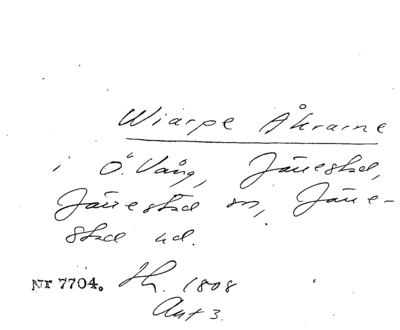 Wiarpe Åkrarne
i Ö. Vång, Järrestad,
Järrestad sn, Järre-
stad hd.
Nr 7704. Sk. 1808
Akt 3.